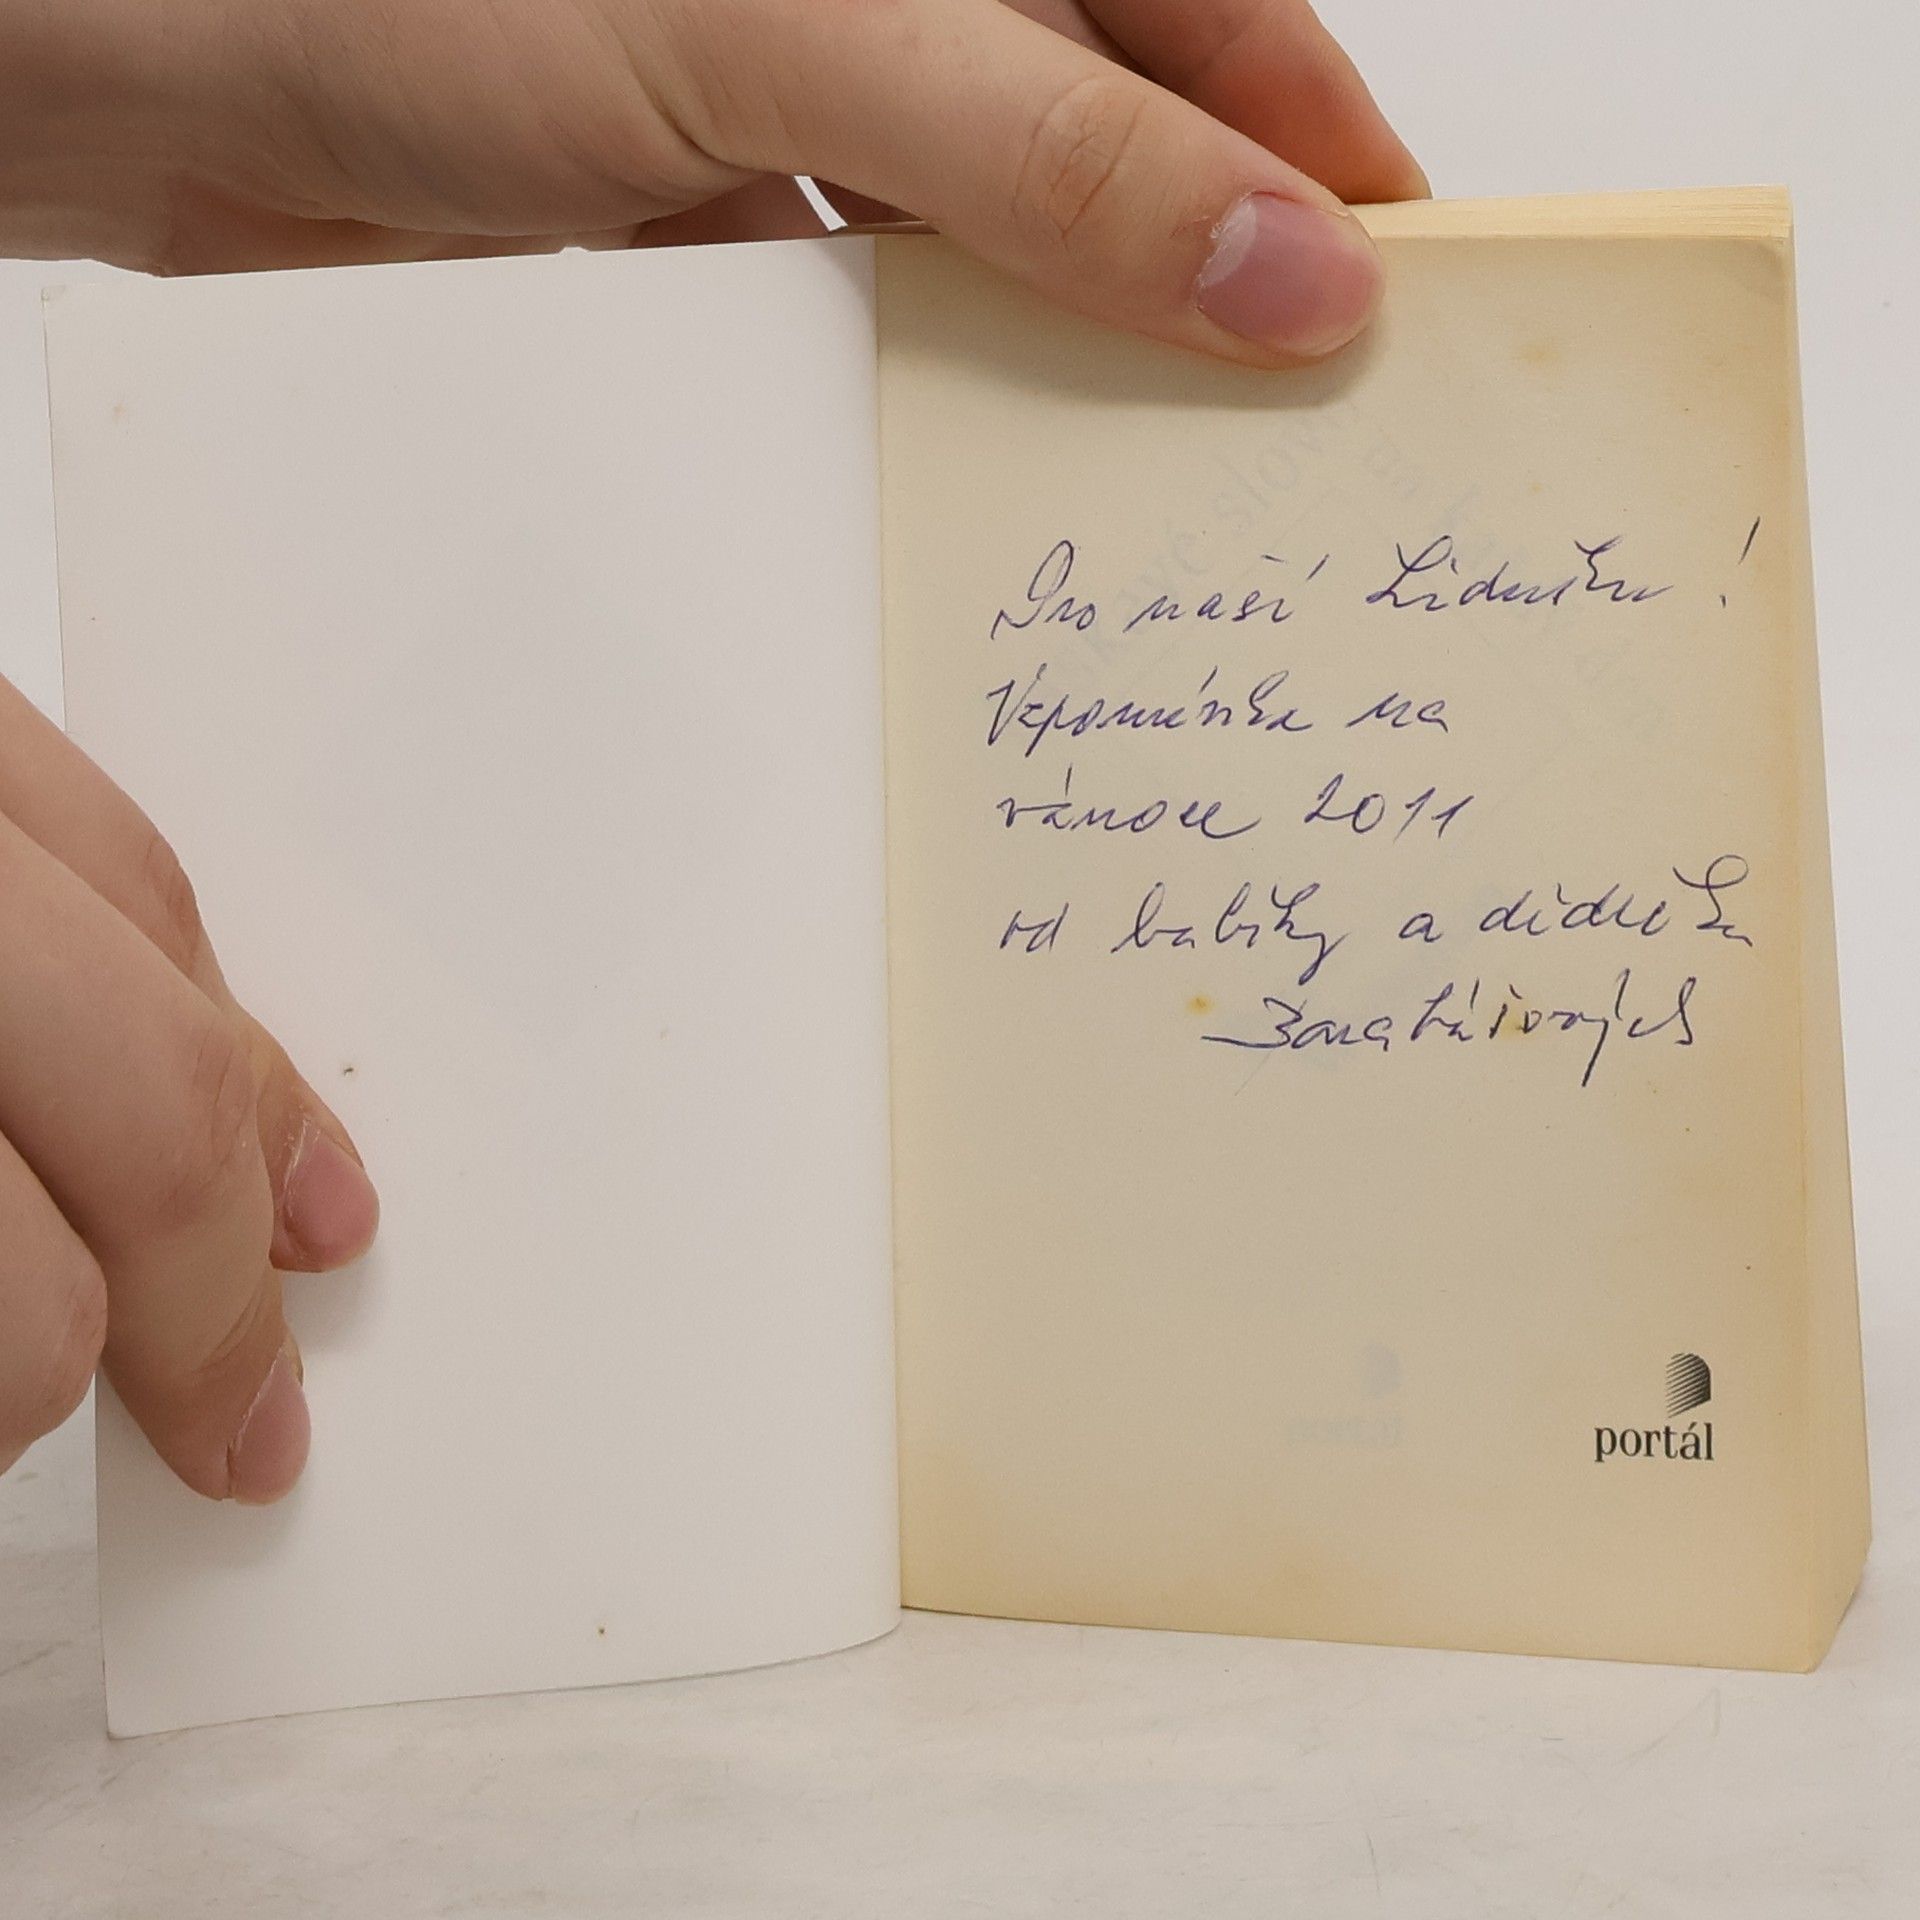 Pro naší Lidušku!
Vzpomínka na
vánoce 2011
od babičky a dědečka
Barabášových
portál